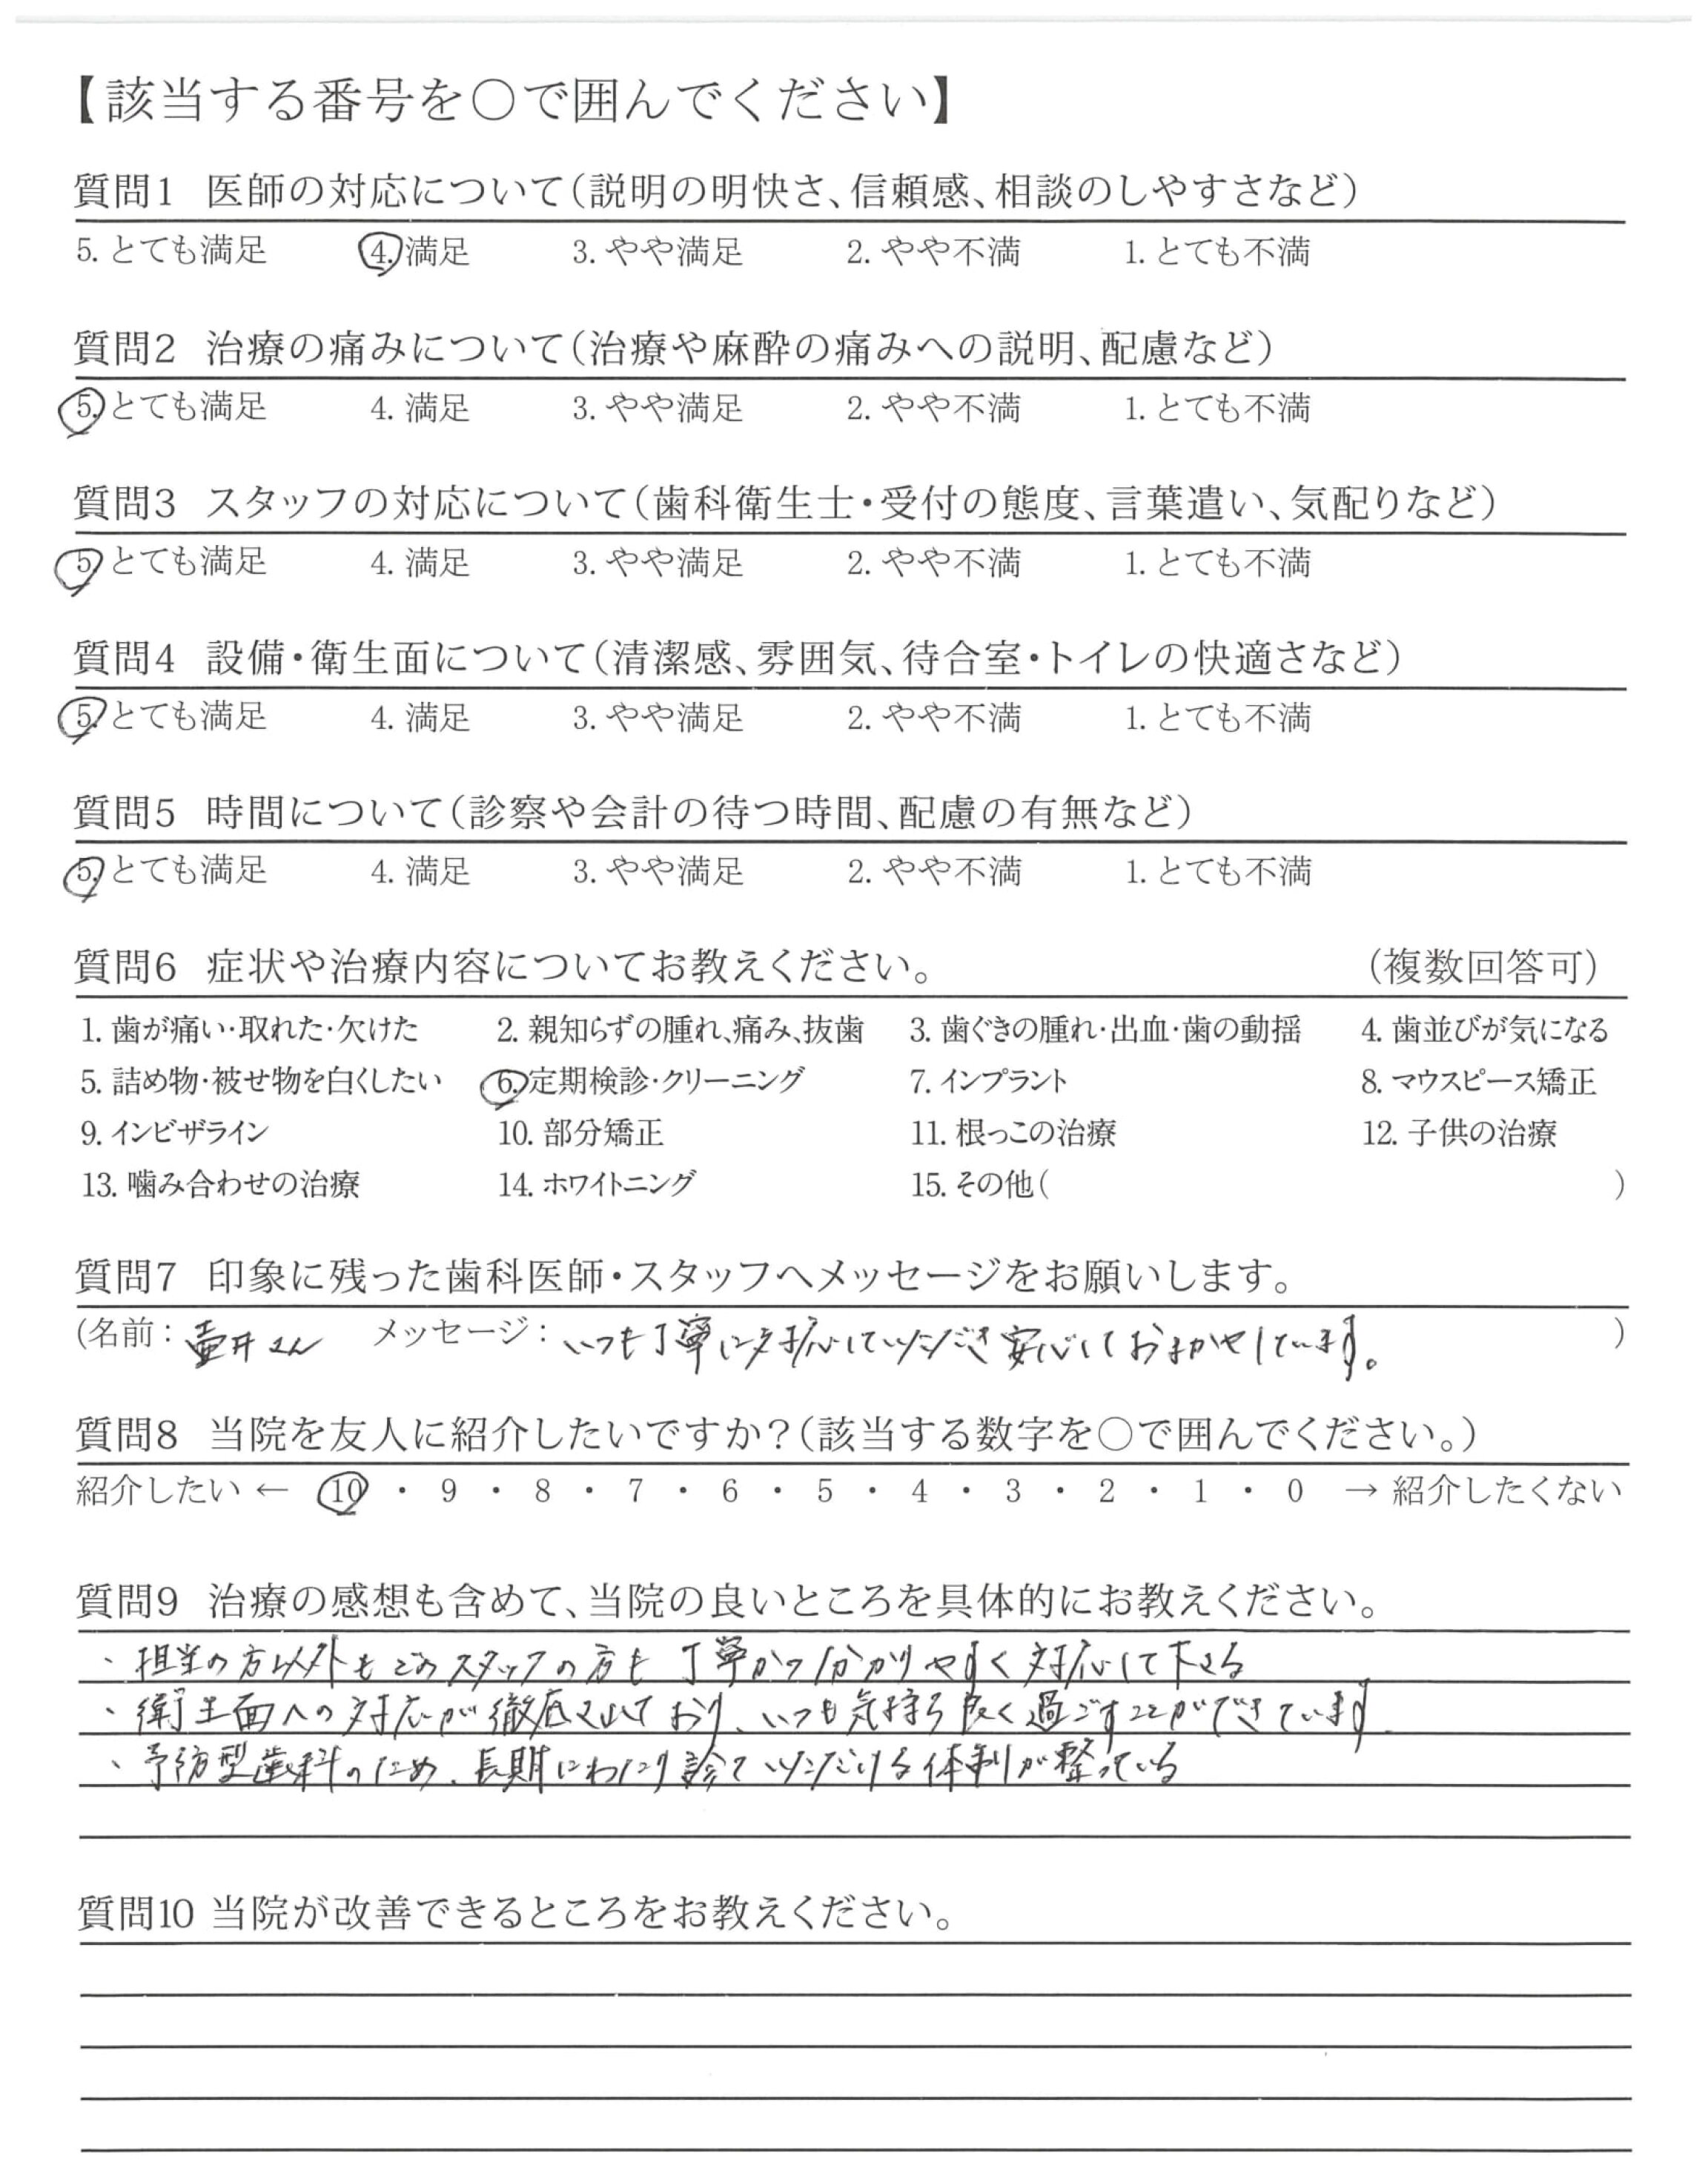 【該当する番号を○で囲んでください】
質問1 医師の対応について(説明の明快さ、信頼感、相談のしやすさなど)
5. とても満足 4. 満足 3. やや満足 2. やや不満 1. とても不満
質問2 治療の痛みについて(治療や麻酔の痛みへの説明、配慮など)
5. とても満足 4. 満足 3. やや満足 2. やや不満 1. とても不満
質問3 スタッフの対応について(歯科衛生士・受付の態度、言葉遣い、気配りなど)
5. とても満足 4. 満足 3. やや満足 2. やや不満 1. とても不満
質問4 設備・衛生面について(清潔感、雰囲気、待合室・トイレの快適さなど)
5. とても満足 4. 満足 3. やや満足 2. やや不満 1. とても不満
質問5 時間について(診察や会計の待つ時間、配慮の有無など)
5. とても満足 4. 満足 3. やや満足 2. やや不満 1. とても不満
質問6 症状や治療内容についてお教えください。 (複数回答可)
1. 歯が痛い・取れた・欠けた 2. 親知らずの腫れ、痛み、抜歯 3. 歯ぐきの腫れ・出血・歯の動揺 4. 歯並びが気になる
5. 詰め物・被せ物を白くしたい 6. 定期検診・クリーニング 7. インプラント 8. マウスピース矯正
9. インビザライン 10. 部分矯正 11. 根っこの治療 12. 子供の治療
13. 噛み合わせの治療 14. ホワイトニング 15. その他( )
質問7 印象に残った歯科医師・スタッフへメッセージをお願いします。
(名前: 壷井さん メッセージ: いつも丁寧に対応していただき安心しておまかせしています。 )
質問8 当院を友人に紹介したいですか?(該当する数字を○で囲んでください。)
紹介したい ← 10 ・ 9 ・ 8 ・ 7 ・ 6 ・ 5 ・ 4 ・ 3 ・ 2 ・ 1 ・ 0 → 紹介したくない
質問9 治療の感想も含めて、当院の良いところを具体的にお教えください。
・担当の方以外もどのスタッフの方も丁寧かつ分かりやすく対応して下さる
・衛生面への対応が徹底されており、いつも気持ち良く過ごすことができています。
・予防型歯科のため、長期にわたり診ていただける体制が整っている
質問10 当院が改善できるところをお教えください。